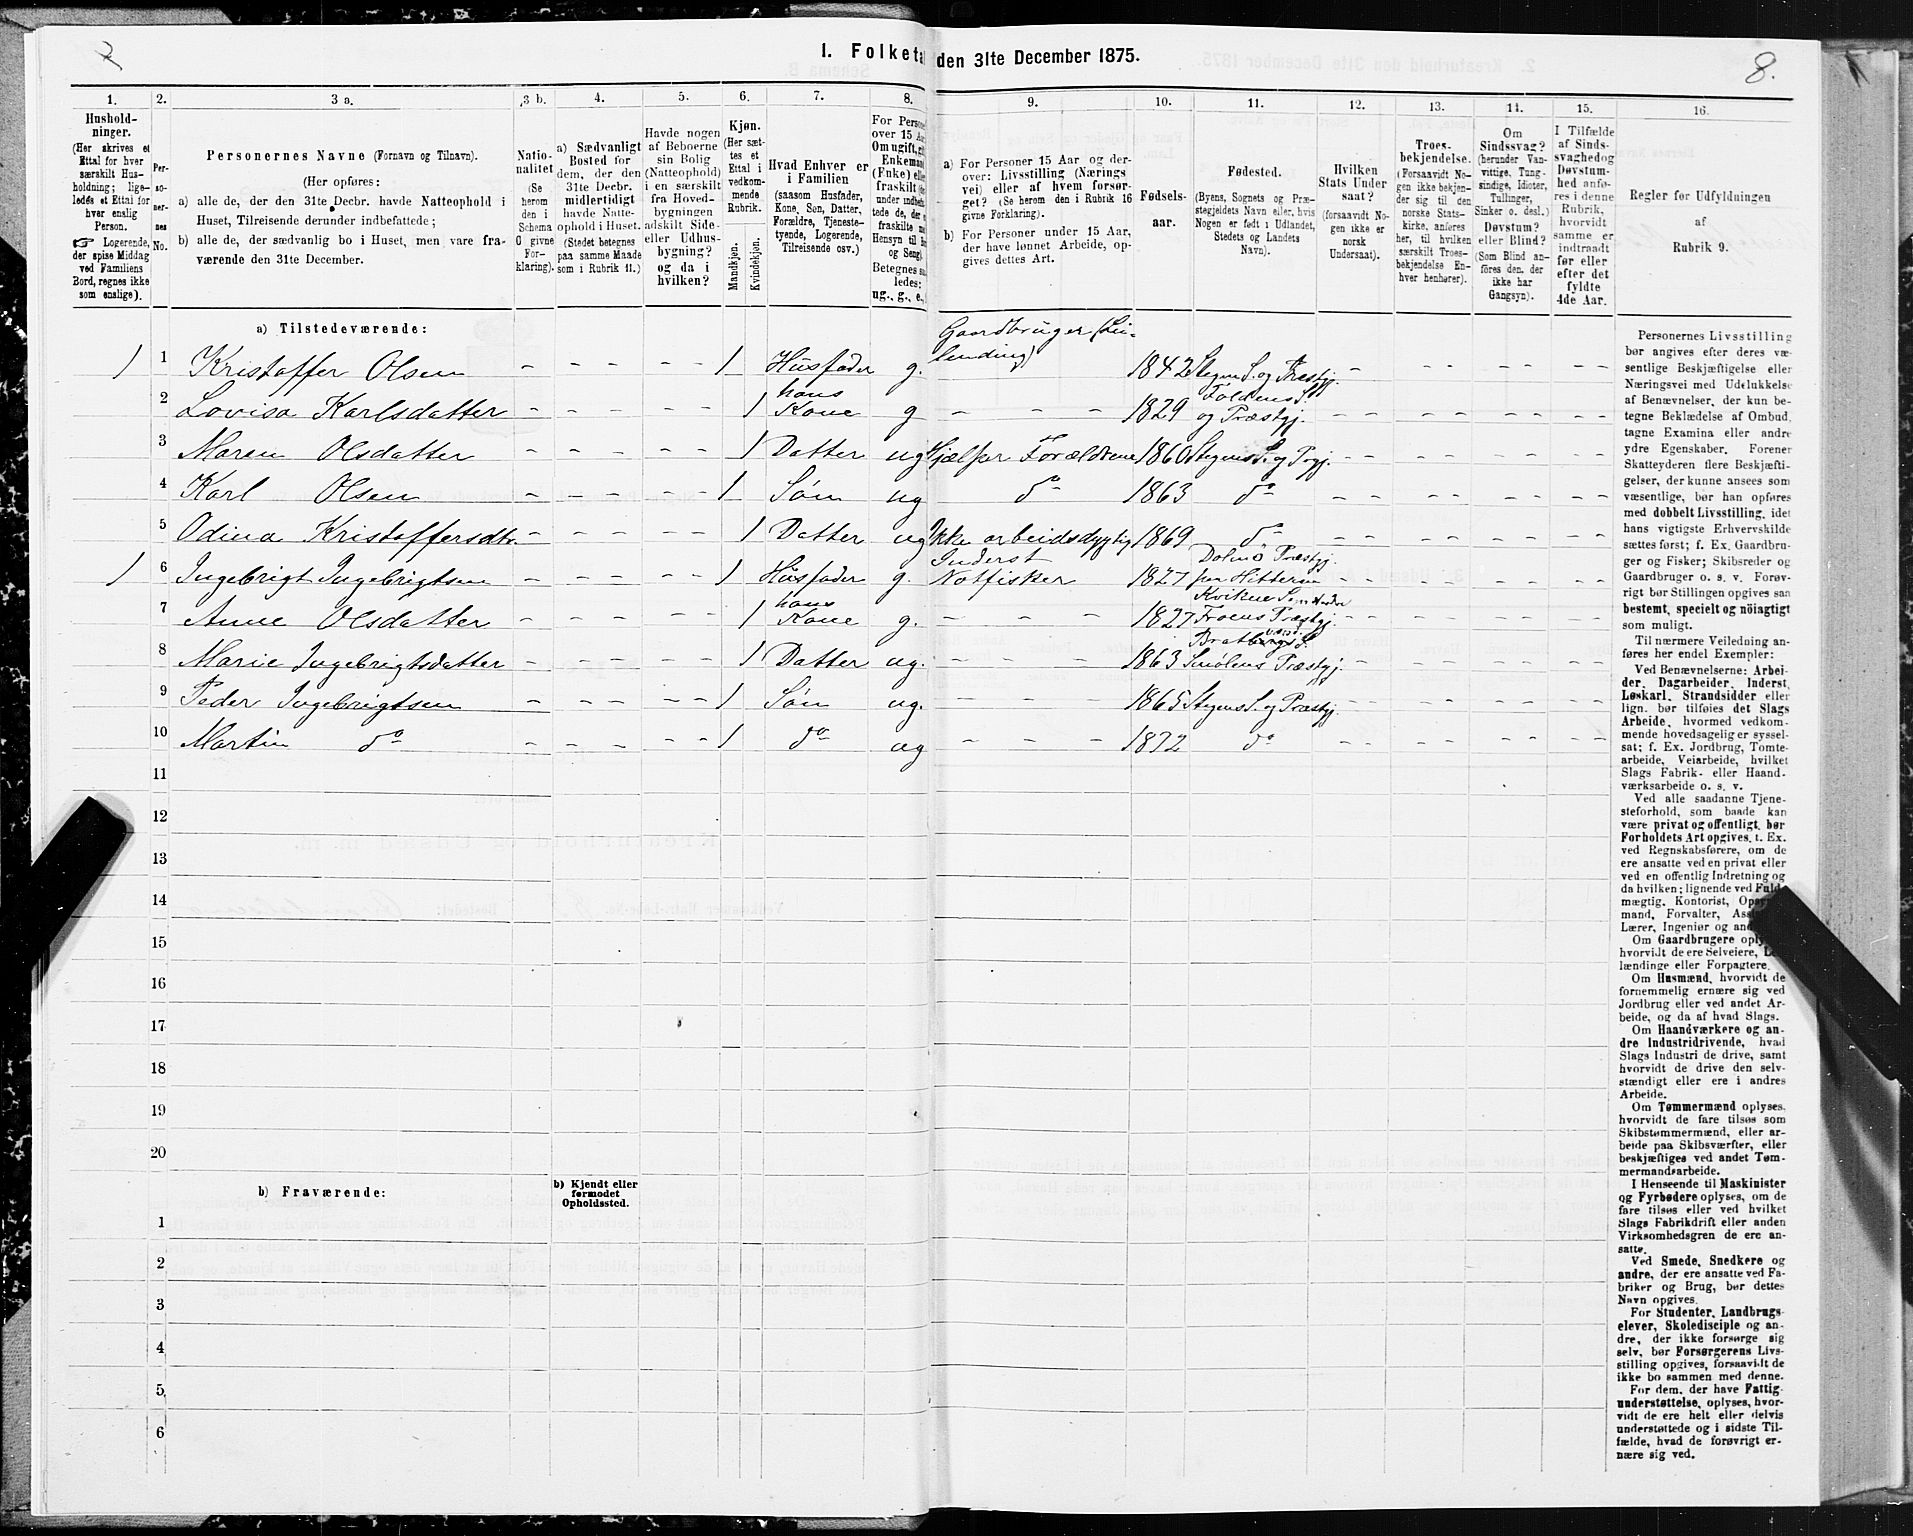 7
8.
1. Folketal den 31te December 1875.
1.
2.
3 a.
3 b.
4.
5.
6.
7.
8.
9.
10.
11.
12.
13.
14.
15.
16.
Hushold-
ninger.
(Her skrives et
Ettal for hver
særskilt Hus-
holdning; lige-
ledes et Ettal for
hver enslig
Person.
☞ Logerende,
der spise Middag
ved Familiens
Bord, regnes ikke
som enslige).
Per-
so-
ner-
nes
No.
Personernes Navne (Fornavn og Tilnavn).
(Her opføres:
a) alle de, der den 31te Decbr. havde Natteophold i
Huset, Tilreisende derunder indbefattede;
b) alle de, der sædvanlig bo i Huset, men vare fra-
værende den 31te December.
Natio-
nalitet
(Se
herom
den i
Schema
C givne
For-
klaring).
a) Sædvanligt
Bosted for
dem, der den
31te Decbr.
midlertidigt
havde Natte-
ophold i Huset.
(Stedet betegnes
paa samme Maade
som i Rubrik 11.)
Havde nogen
af Beboerne
sin Bolig
(Natteophold)
i en særskilt
fra Hoved-
bygningen
adskilt Side-
eller Udhus-
bygning?
og da i
hvilken?
Kjøn.
(Her sæt-
tes et
Ettal i
vedkom-
mende
Rubrik.
Mandkjøn.
Kvindekjøn.
Hvad Enhver er
i Familien
(saasom Husfader,
Kone, Søn, Datter,
Forældre, Tjeneste-
tyende, Logerende,
Tilreisende osv.)
For Person
over 15 Aa
Om ugift, gi
Enkemand
(Enke) elle
fraskilt
under indbefat-
tede de, der
fraskilte
Hensyn til
og Seng).
Betegnes
ledes:
ug., g., e.,
a) For Personer 15 Aar og der-
over: Livsstilling (Nærings
vei) eller af hvem forsør-
get? (Se herom den i Rubrik 16
givne Forklaring).
b) For Personer under 15 Aar,
der have lønnet Arbeide, op-
gives dettes Art.
Fødsels-
aar.
Fødested.
(Byens, Sognets og Præ-
stegjeldets Navn eller, hvis
Nogen er født i Udlandet,
Stedets og Landets
Navn).
Hvilken
Stats Under
saat?
(forsaavidt No-
gen ikke er
norsk
Undersaat).
Troes-
bekjendelse.
(Forsaavidt No-
gen ikke bekjen-
der sig til den
norske Stats-
kirke, anføres
her, til hvilken
særskilt Troes-
bekjendelse En-
hver henhører).
Om
Sindssvag?
(herunder Van-
vittige, Tung-
sindige, Idioter,
Tullinger,
Sinker o. desl.)
Døvstum?
eller Blind?
(Som Blind an-
føres den, der
ikke har
Gangsyn).
I Tilfælde
af Sinds-
svaghed og
Døvstum-
hed anfø-
res i denne
Rubrik,
hvorvidt
samme er
indtraadt
før eller
efter det
fyldte
4de Aar.
Regler for Udfyldningen
af
Rubrik 9.
a) Tilstedeværende:
1 1 Kristoffer Olsen - - - - - 1 Husfader g. Gaardbruger (Lei-
lending) 1842 Stegens S. og Præstgj. - - - -
2 Lovisa Karlsdatter - - - - - 1 hans
Kone g - - - 1829 Foldens S.
og Præstgj. - - - -
3 Maren Olsdatter - - - - - 1 Datter ug Hjælper Forældrene 1860 Stegens S. og Prgj. - - - -
4 Karl Olsen - - - - - 1 Søn ug do 1863 do - - - -
5 Odina Kristoffersdtr. - - - - - 1 Datter ug Ikke arbeidsdygtig 1869 do - - - -
1 6 Ingebrigt Ingebrigtsen - - - - - 1 Husfader g. Inderst
Notfisker 1827 Dolmø Præstgj.
paa Hitteren - - - -
7 Anne Olsdatter - - - - 1 hans
Kone g. - - - 1827 Kvikne S.
Froens Præstgj. - - - -
8 Marie Ingebrigtsdatter - - - - - 1 Datter ug. - - - 1863 S.
Smølens Præstgj. - - - -
9 Peder Ingebrigtsen - - - - - 1 Søn ug. - - - 1865 Stegens S. og Præstgj. - - - -
10 Martin do - - - - - 1 do ug - - - 1872 do - - - -
11
12
13
14
15
16
17
18
19
20
b) Fraværende:
b) Kjendt eller
formodet
Opholdssted.
1
2
3
4
5
6
Personernes Livsstilling
bør angives efter deres væ-
sentlige Beskjæftigelse eller
Næringsvei med Udelukkelse
af Benævnelser, der kun be-
tegne Beklædelse af Ombud,
tagne Examina eller andre
ydre Egenskaber. Forener
Skatteyderen flere Beskjæfti-
gelser, der kunne ansees som
væsentlige, bør han opføres
med dobbelt Livsstilling, idet
hans vigtigste Erhvervskilde
sættes først; f. Ex. Gaardbru-
ger og Fisker; Skibsreder og
Gaardbruger o. s. v. Forøv-
rigt bør Stillingen opgives saa
bestemt, specielt og nöiagtigt
som muligt.
Til nærmere Veiledning an-
føres her endel Exempler:
Ved Benævnelserne: Arbei-
der, Dagarbeider, Inderst,
Løskarl, Strandsidder eller
lign. bør tilføies det Slags
Arbeide, hvormed vedkom-
mende hovedsagelig er syssel-
sat; f. Ex. Jordbrug, Tomte-
arbeide, Veiarbeide, hvilket
Slags Fabrik- eller Haand-
værksarbeide o. s. v.
Ved alle saadanne Tjene-
steforhold, som baade kan
være privat og offentligt, bør
Forholdets Art opgives, t. Ex.
ved Regnskabsførere, om de
ere ansatte ved en privat eller
ved en offentlig Indretning og
da hvilken; lignende ved Fuld-
mægtig, Kontorist,
mand, Forvalter,
Lærer, Ingeniør og
Om Gaardbrugere
hvorvidt de ere Selveiere,
lændinge eller Forpagtere.
Om Husmænd, hvorvidt de
fornemmelig ernære sig ved
Jordbrug eller ved andet Ar-
beide, og da af hvad Slags.
Om Haandværkere og an-
dre Industridrivende, hvad
Slags Industri de drive, samt
hvorvidt de drive den selv-
stændigt eller ere i andres
Arbeide.
Om Tømmermænd oplyses,
hvorvidt de fare tilsøs som
Skibstømmermænd, eller ar-
beide paa Skibsværfter, eller
beskjæftiges ved andet Tøm-
mermandsarbeide.
I Henseende til Maskinister
og Fyrbødere oplyses, om de
fare tilsøs eller ved hvilket
Slags Fabrikdrift eller anden
Virksomhedsgren de ere an-
satte.
Ved Smede, Snedkere og
andre, der ere ansatte ved Fa-
briker og Brug, bør dettes
Navn opgives.
For Studenter, Landbrugs-
elever, Skoledisciple og an-
dre, der ikke forsørge sig
selv, bør Forsørgerens Livs-
stilling opgives, forsaavidt de
ikke bo sammen med denne.
For dem, der have Fattig-
understøttelse, oplyses, hvor-
vidt de ere helt eller delvis
understøttede og i sidste Til-
fælde, hvad de forøvrigt er-
nære sig ved.